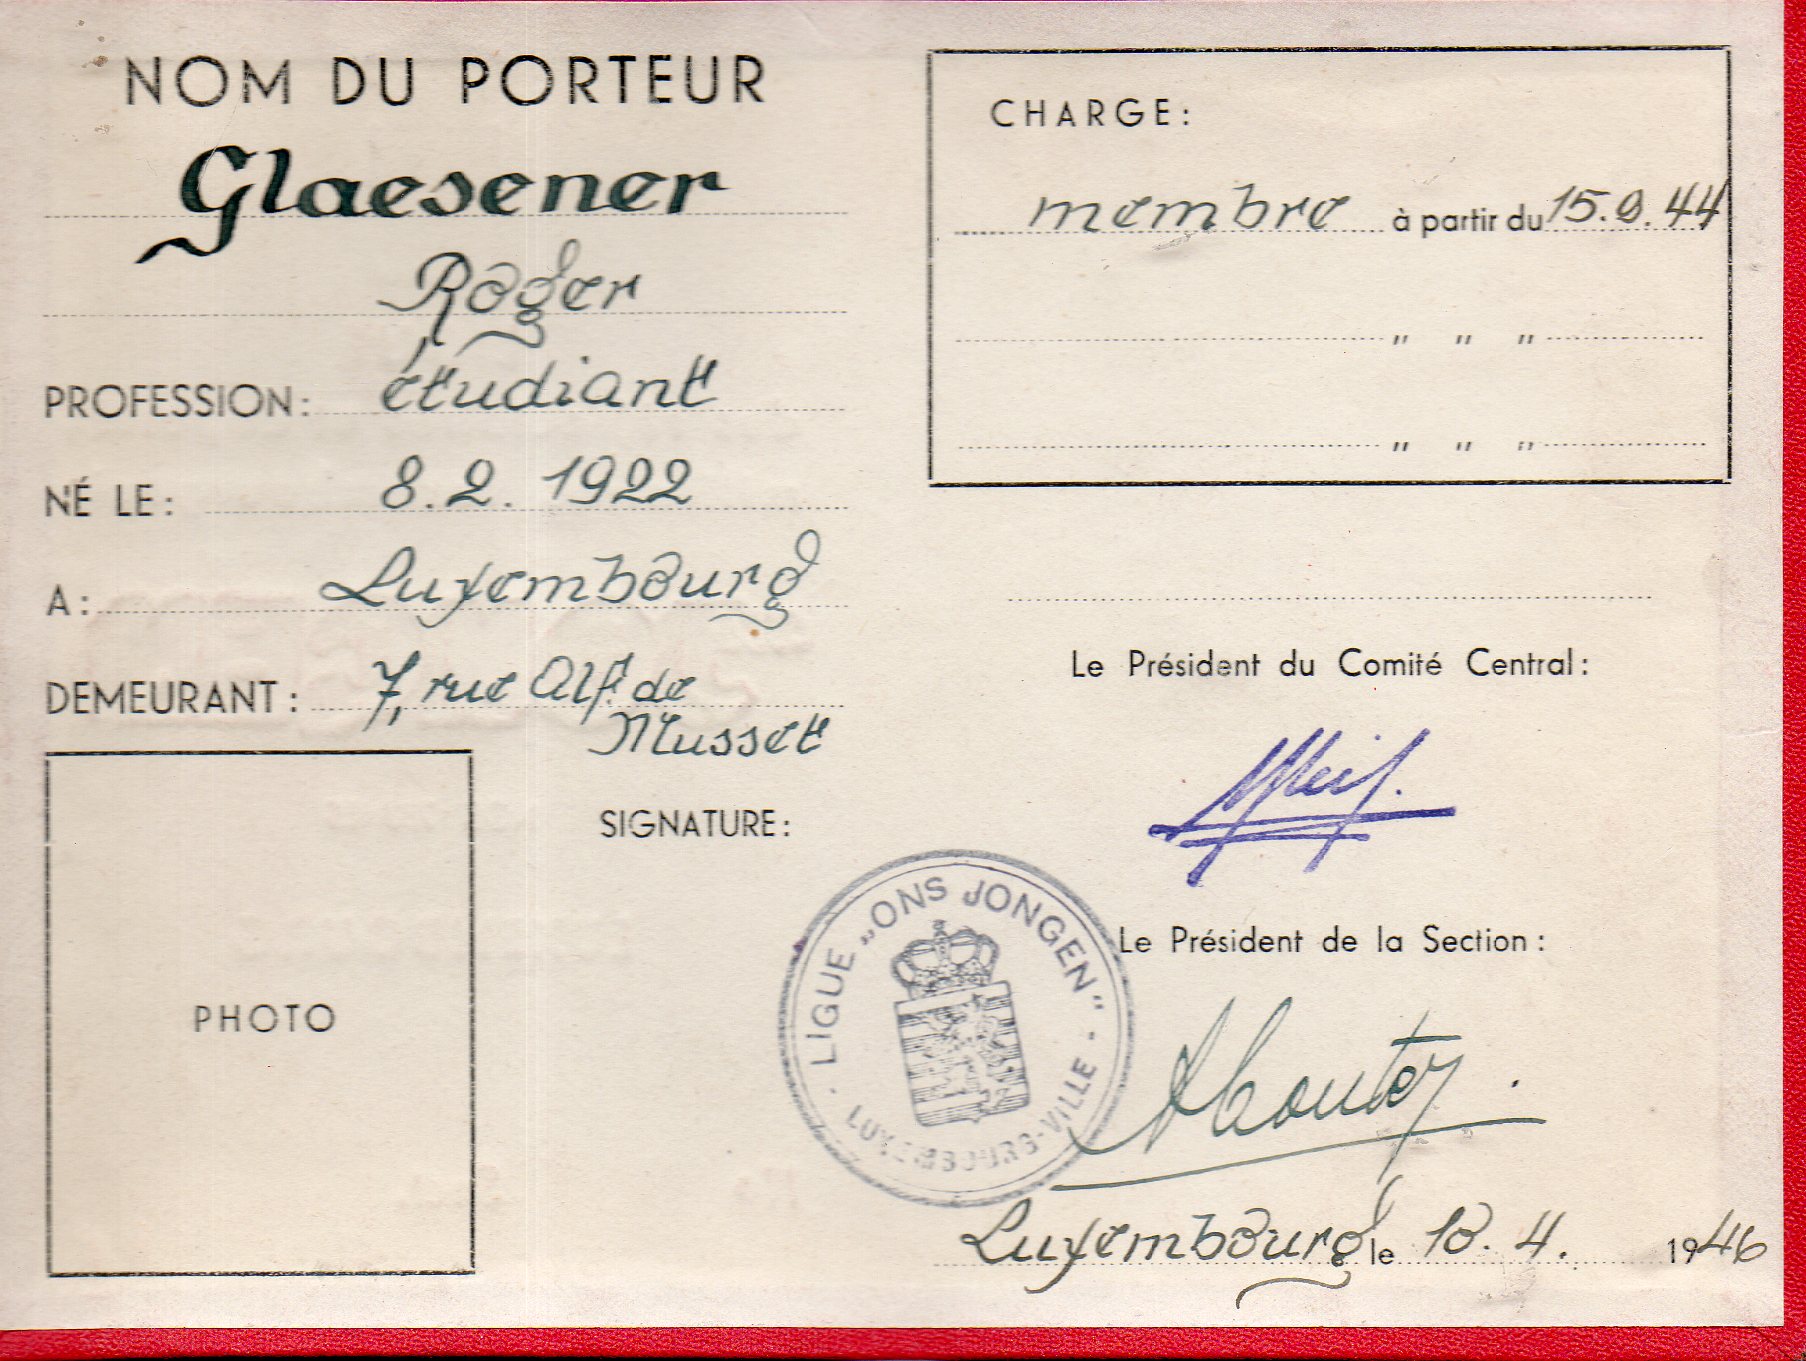 NOM DU PORTEUR
Glaesener
Roger
PROFESSION: étudiant
NÉ LE: 8.2.1922
A: Luxembourg
DEMEURANT: 7, rue Alf. de
Musset
PHOTO
SIGNATURE:
CHARGE:
membre à partir du 15.9.44
" " "
" " "
Le Président du Comité Central:
LIGUE „ONS JONGEN"
LUXEMBOURG-VILLE
Le Président de la Section:
Luxembourg le 10.4. 1946